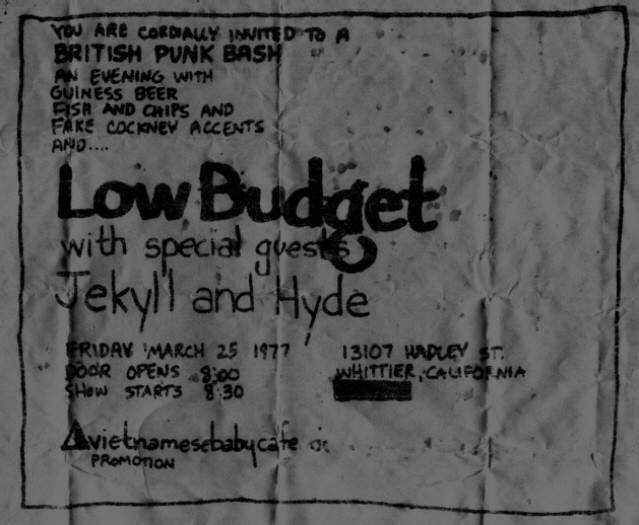 YOU ARE CORDIALLY INVITED TO A
BRITISH PUNK BASH
AN EVENING WITH
GUINESS BEER
FISH AND CHIPS AND
FAKE COCKNEY ACCENTS
AND....
Low Budget
with special guests
Jekyll and Hyde
FRIDAY MARCH 25 1977
DOOR OPENS 8:00
SHOW STARTS 8:30
13107 HADLEY ST.
WHITTIER, CALIFORNIA
vietnamesebabycafe
PROMOTION